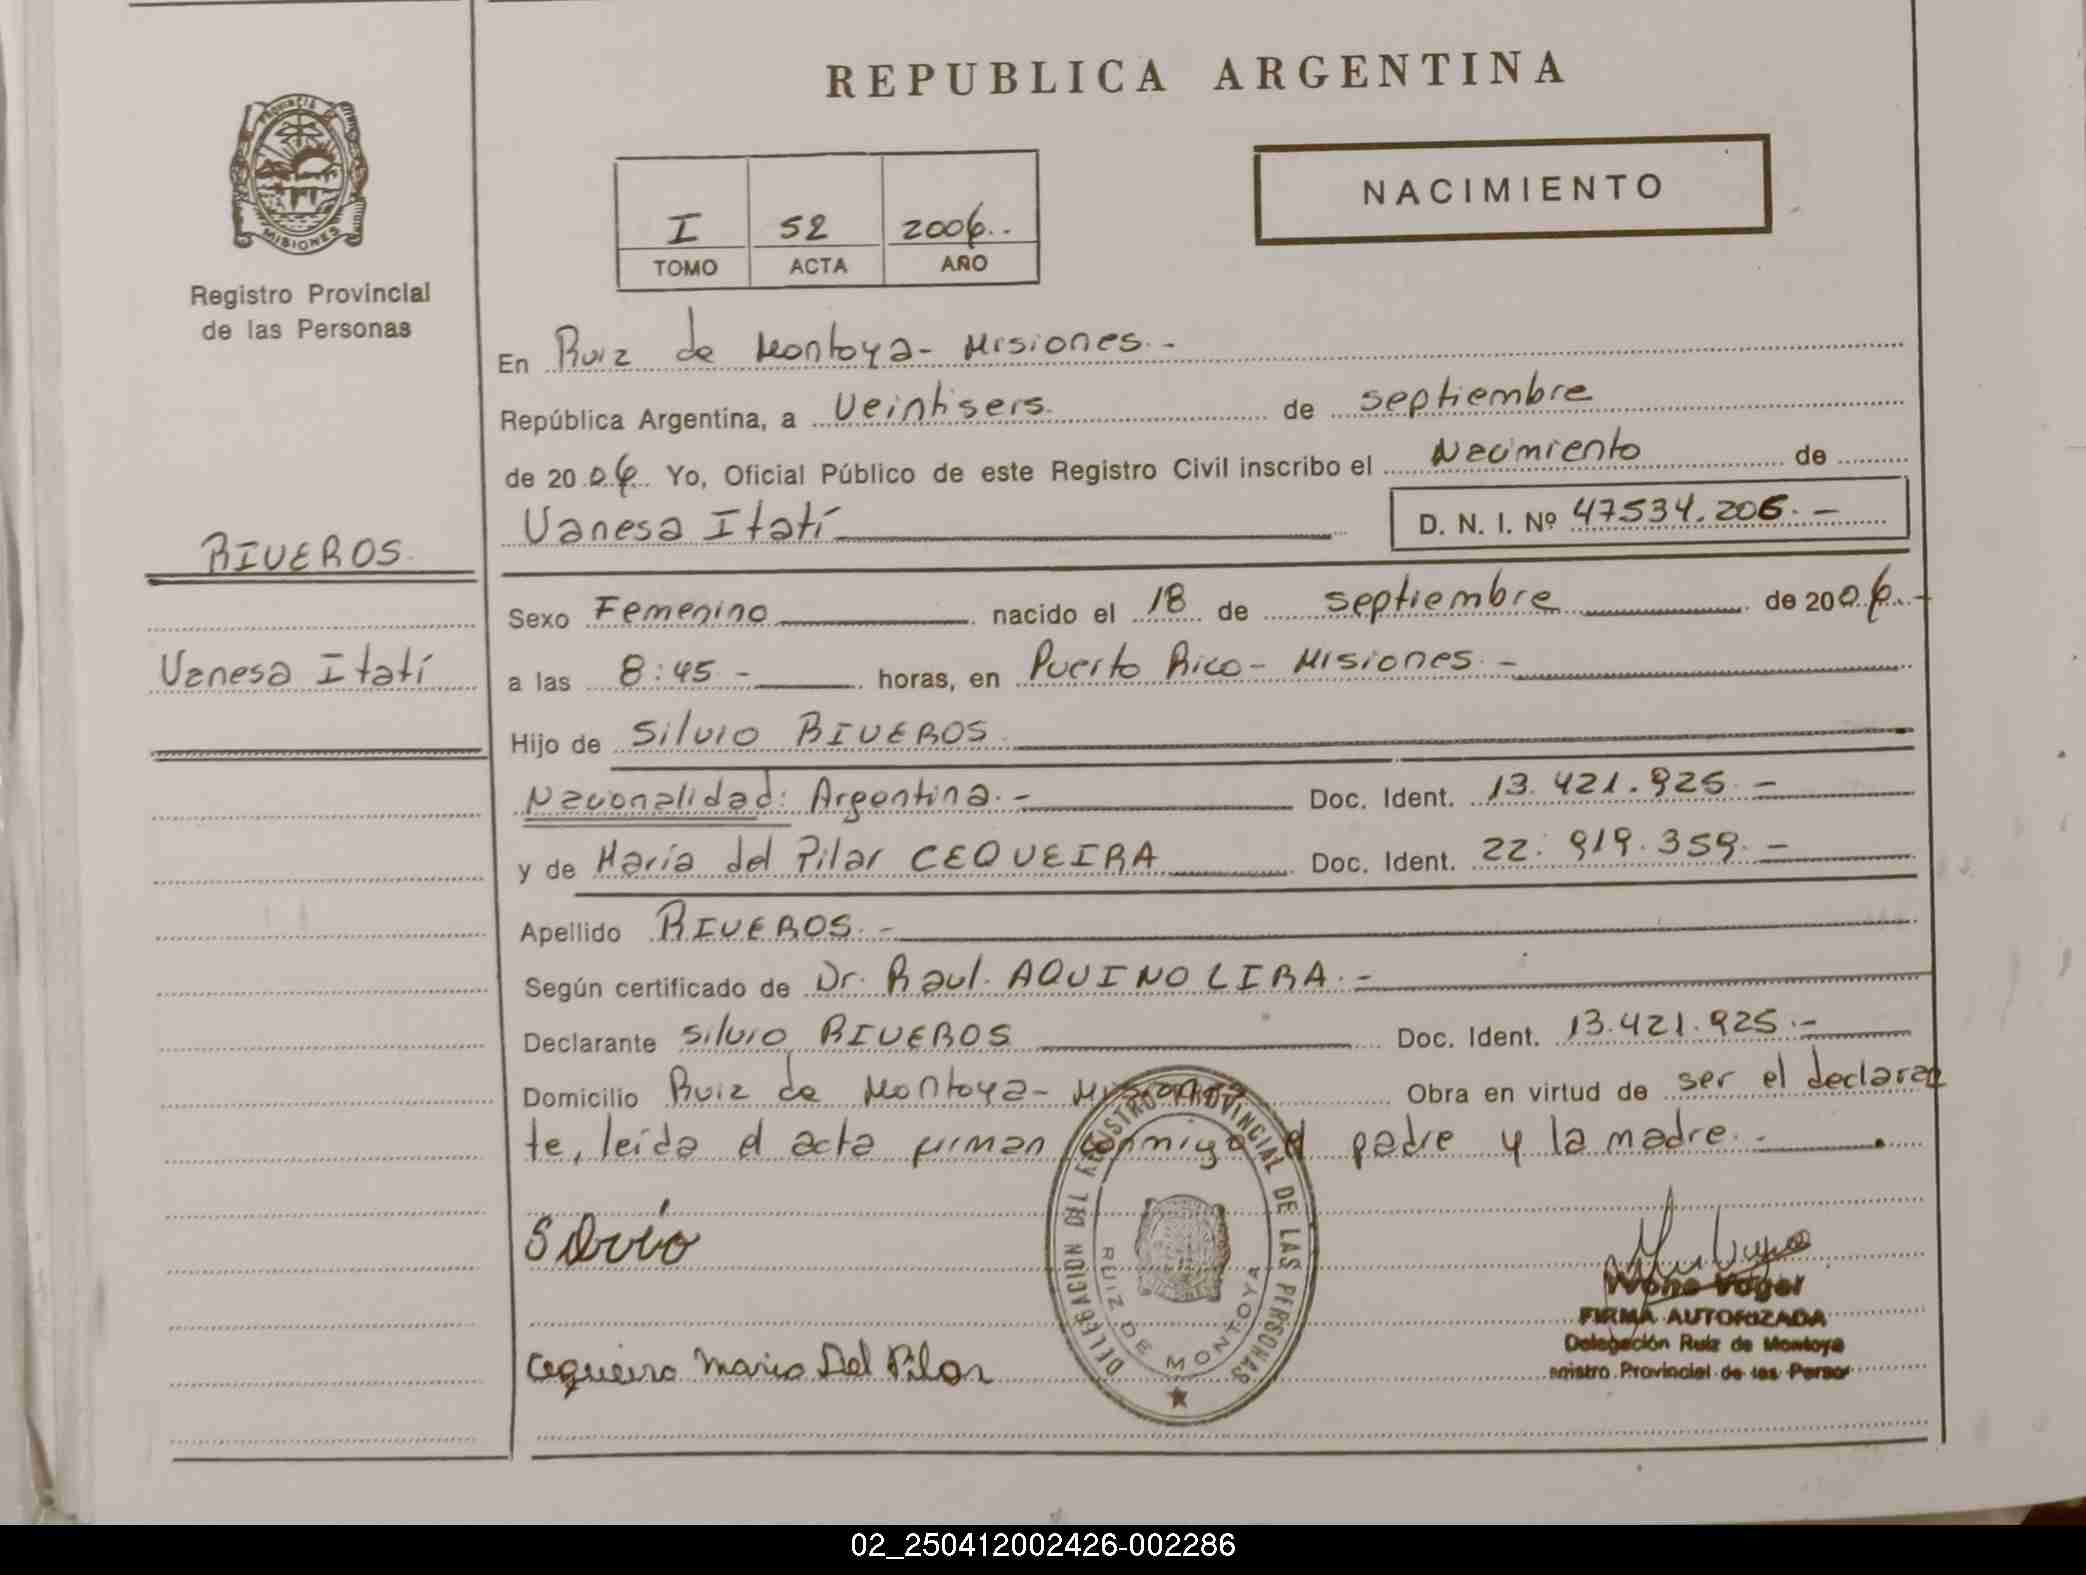 REPUBLICA ARGENTINA
PROVINCIA
MISIONES
Registro Provincial
de las Personas
NACIMIENTO
I 52 2006..
TOMO ACTA AÑO
En Ruiz de Montoya- Misiones.-
República Argentina, a Veintiseis. de septiembre
de 2006. Yo, Oficial Público de este Registro Civil inscribo el Nacimiento de
Vanesa Itatí D. N. I. Nº 47534.206.-
RIVEROS.
Vanesa Itatí
Sexo Femenino nacido el 18 de septiembre de 2006.-
a las 8:45.- horas, en Puerto Rico- Misiones.-
Hijo de Silvio RIVEROS
Nacionalidad: Argentina.- Doc. Ident. 13.421.925.-
y de María del Pilar CEQUEIRA Doc. Ident. 22.919.359.-
Apellido RIVEROS.-
Según certificado de Dr. Raul. AQUINO LIRA.-
Declarante Silvio RIVEROS Doc. Ident. 13.421.925.-
Domicilio Ruiz de Montoya- Misiones Obra en virtud de ser el declaran
te, leída el acta firman conmigo el padre y la madre.-
Silvio
Cequeira Maria Del Pilar
DELEGACION DEL REGISTRO PROVINCIAL DE LAS PERSONAS
RUIZ DE MONTOYA
Voger
FIRMA AUTORIZADA
Delegación Ruiz de Montoya
Provincial de las Person
02_250412002426-002286